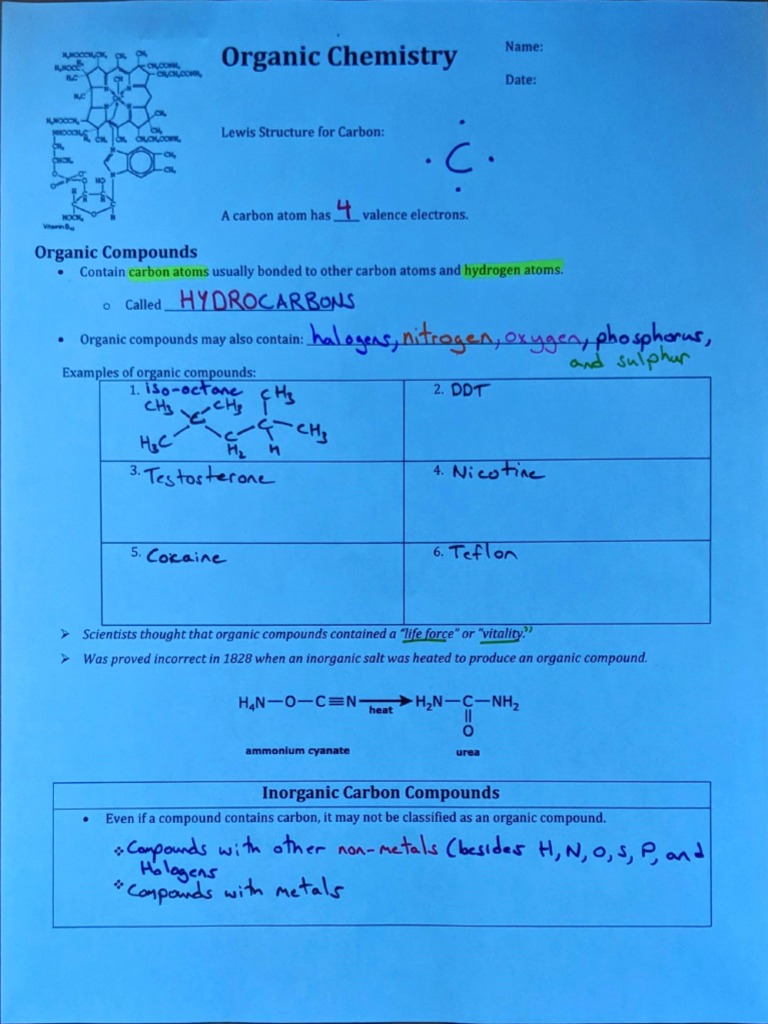 Organic Chemistry
Name:
Date:
Lewis Structure for Carbon:
C
A carbon atom has 4 valence electrons.
Vitamin B12
Organic Compounds
• Contain carbon atoms usually bonded to other carbon atoms and hydrogen atoms.
o Called HYDROCARBONS
• Organic compounds may also contain: halogens, nitrogen, oxygen, phosphorus,
and sulphur
Examples of organic compounds:
1. iso-octane
CH3 CH3 CH3
C C CH3
H3C C H
H2
2. DDT
3. Testosterone
4. Nicotine
5. Cocaine
6. Teflon
➢ Scientists thought that organic compounds contained a "life force" or "vitality."
➢ Was proved incorrect in 1828 when an inorganic salt was heated to produce an organic compound.
H₄N—O—C≡N heat H₂N—C—NH₂
O
ammonium cyanate urea
Inorganic Carbon Compounds
• Even if a compound contains carbon, it may not be classified as an organic compound.
❖ Compounds with other non-metals (besides H, N, O, S, P, and
Halogens
❖ Compounds with metals